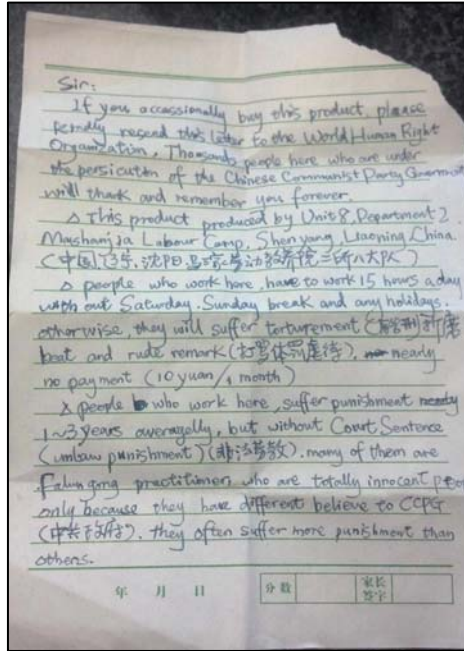 Sir:
If you occassionally buy this product, please
kindly resend this letter to the World Human Right
Organization. Thousands people here who are under
the persicution of the Chinese Communist Party Government
will thank and remember you forever.
△ This product produced by Unit 8, Department 2,
Mashanjia Labour Camp, Shenyang, Liaoning, China.
(中国,辽宁,沈阳马三家劳动教养院二所八大队)
△ people who work here, have to work 15 hours a day
with out Saturday, Sunday break and any holidays.
otherwise, they will suffer torturement (酷刑) 折磨
beat and rude remark (打骂体罚虐待). nearly
no payment (10 yuan/1 month)
△ people who work here, suffer punishment
1~3 years averagelly, but without Court Sentence
(unlaw punishment) (非法劳教). many of them are
Falun gong practitioner, who are totally innocent people
only because they have different believe to CCPG
(中共政府), they often suffer more punishment than
others.
年 月 日 分数 家长签字